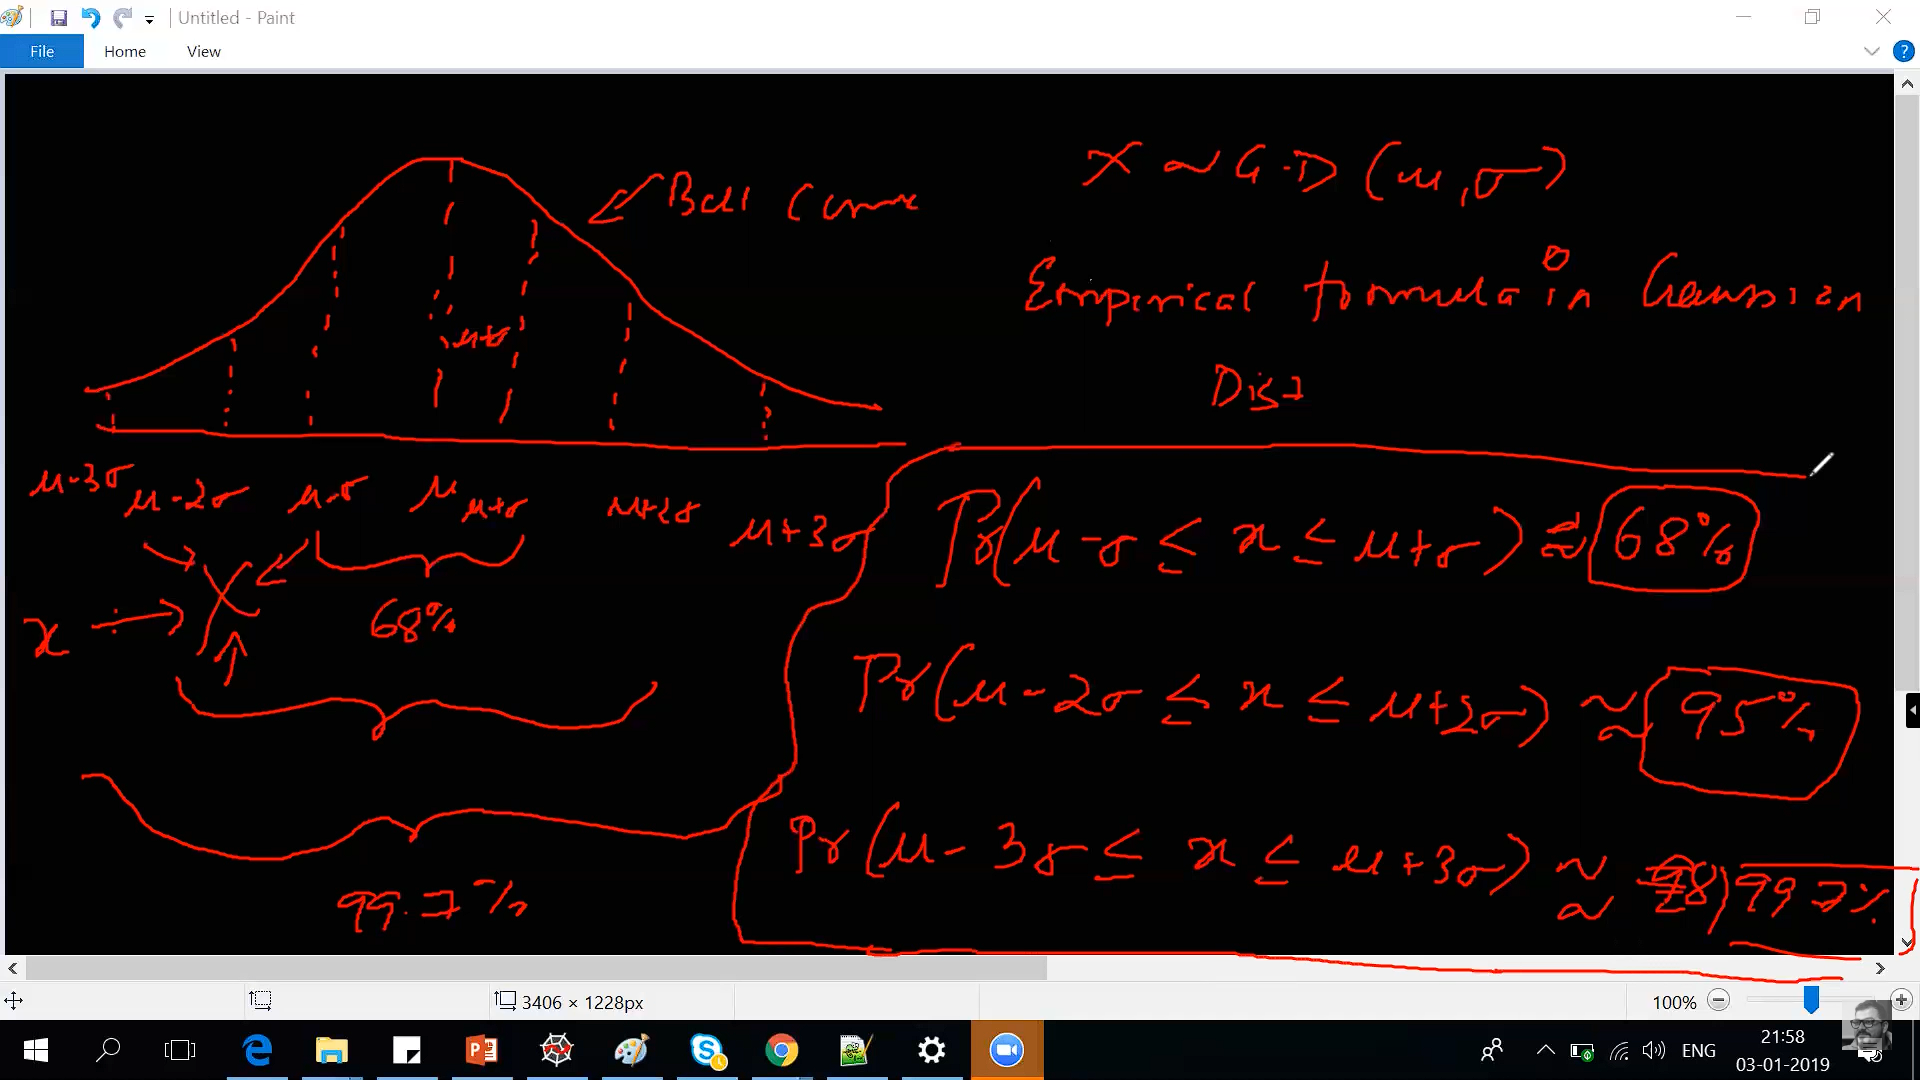 Untitled - Paint
File Home View
Bell Curve
X ~ G.D (μ, σ)
Empirical formula in Gaussian
Dist
μ+σ
μ-3σ μ-2σ μ-σ μ μ+σ μ+2σ μ+3σ
Pr(μ-σ ≤ x ≤ μ+σ) ≈ 68%
x → X
68%
Pr(μ-2σ ≤ x ≤ μ+2σ) ≈ 95%
Pr(μ-3σ ≤ x ≤ μ+3σ) ≈ 99.7%
99.7%
3406 × 1228px
100%
ENG
21:58
03-01-2019